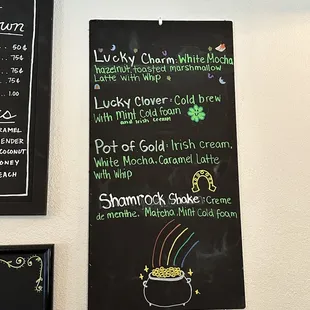 own
50¢
75¢
75¢
1.00
s
ARAMEL
ENDER
COCONUT
ONEY
EACH
Lucky Charm: White Mocha
hazelnut, toasted marshmallow
Latte with Whip
Lucky Clover: Cold brew
With Mint Cold foam
and Irish cream
Pot of Gold: Irish cream,
White Mocha, Caramel Latte
with Whip
Shamrock Shake: Creme
de menthe, Matcha, Mint Cold foam